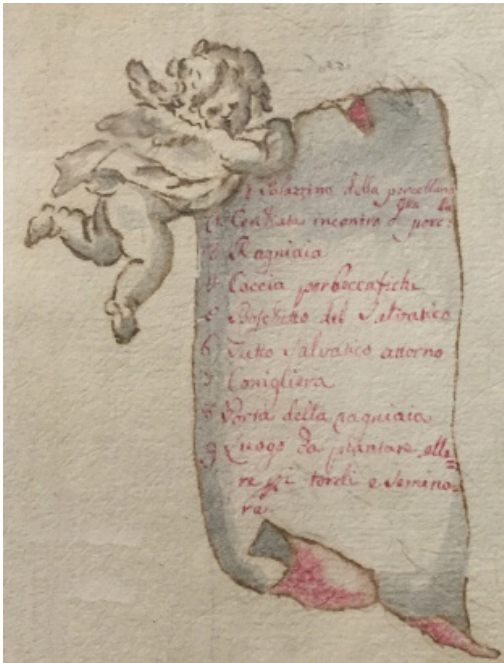 1 Palazzino della porcellana
2 Contrata incontro d. porc:
3 Ragniaia
4 Coccia per beccafichi
5 Boschetto del Salvatico
6 Tutto Salvatico attorno
7 Conigliera
8 Porta della ragniaia
9 Luogo da plantare elle=
re pi tordi e semina=
re